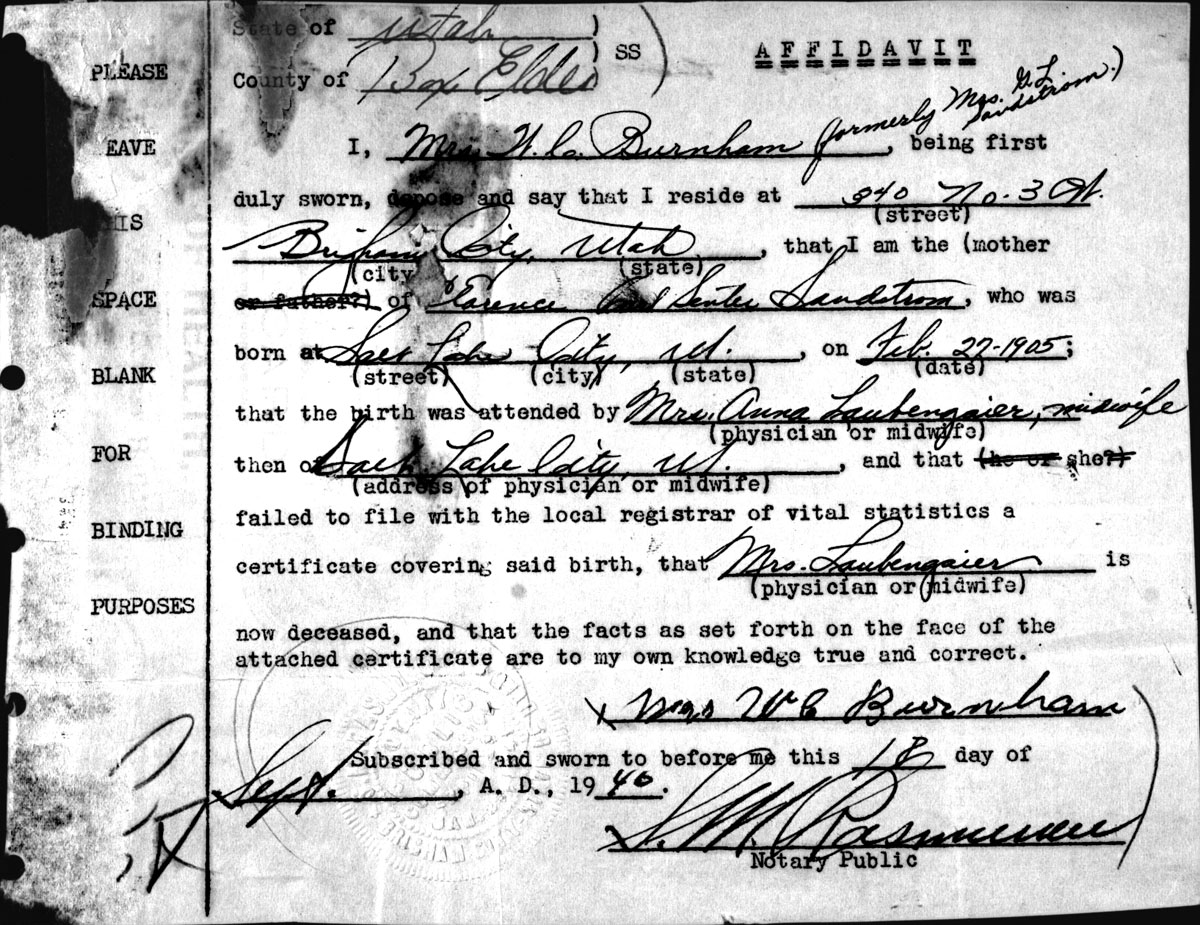 State of Utah )
) SS )
County of Box Elder )
AFFIDAVIT
PLEASE
EAVE
HIS
SPACE
BLANK
FOR
BINDING
PURPOSES
(formerly Mrs. G. L. Sandstrom.)
I, Mrs. W. C. Burnham, being first
duly sworn, depose and say that I reside at 340 No. 3 W.
(street)
Brigham City, Utah, that I am the (mother
(city (state)
or father?) of Clarence Senter Sandstrom, who was
born at Salt Lake City, Ut., on Feb. 27-1905;
(street) (city) (state) (date)
that the birth was attended by Mrs. Anna Laubengaier, midwife
(physician or midwife)
then of Salt Lake City, Ut., and that (he or she?)
(address of physician or midwife)
failed to file with the local registrar of vital statistics a
certificate covering said birth, that Mrs. Laubengaier is
(physician or midwife)
now deceased, and that the facts as set forth on the face of the
attached certificate are to my own knowledge true and correct.
x Mrs W C Burnham
Subscribed and sworn to before me this 18 day of
Sept., A. D., 1940.
x S. M. Rasmussen
Notary Public